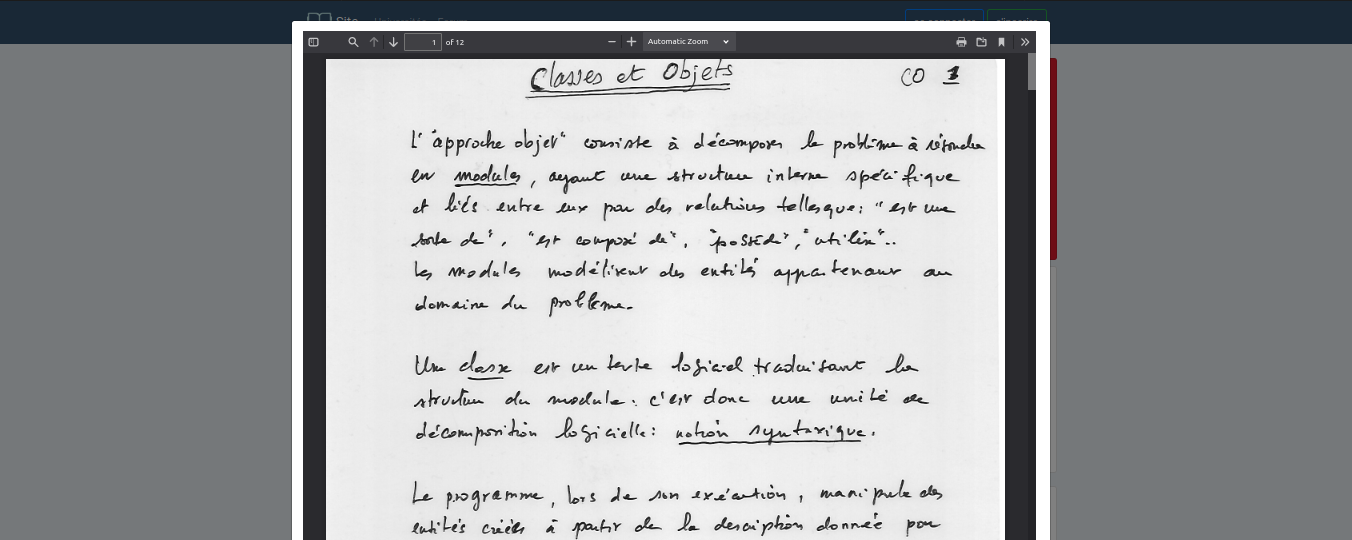 Site
1 of 12
Automatic Zoom
Classes et Objets
CO 1
L' "approche objet" consiste à décomposer le problème à résoudre
en modules, ayant une structure interne spécifique
et liés entre eux par des relations telles que: "est une
sorte de", "est composé de", "possède", "utilise"..
Les modules modélisent des entités appartenant au
domaine du problème.
Une classe est un texte logiciel traduisant la
structure du module: c'est donc une unité de
décomposition logicielle: notion syntaxique.
Le programme, lors de son exécution, manipule des
entités créées à partir de la description donnée par